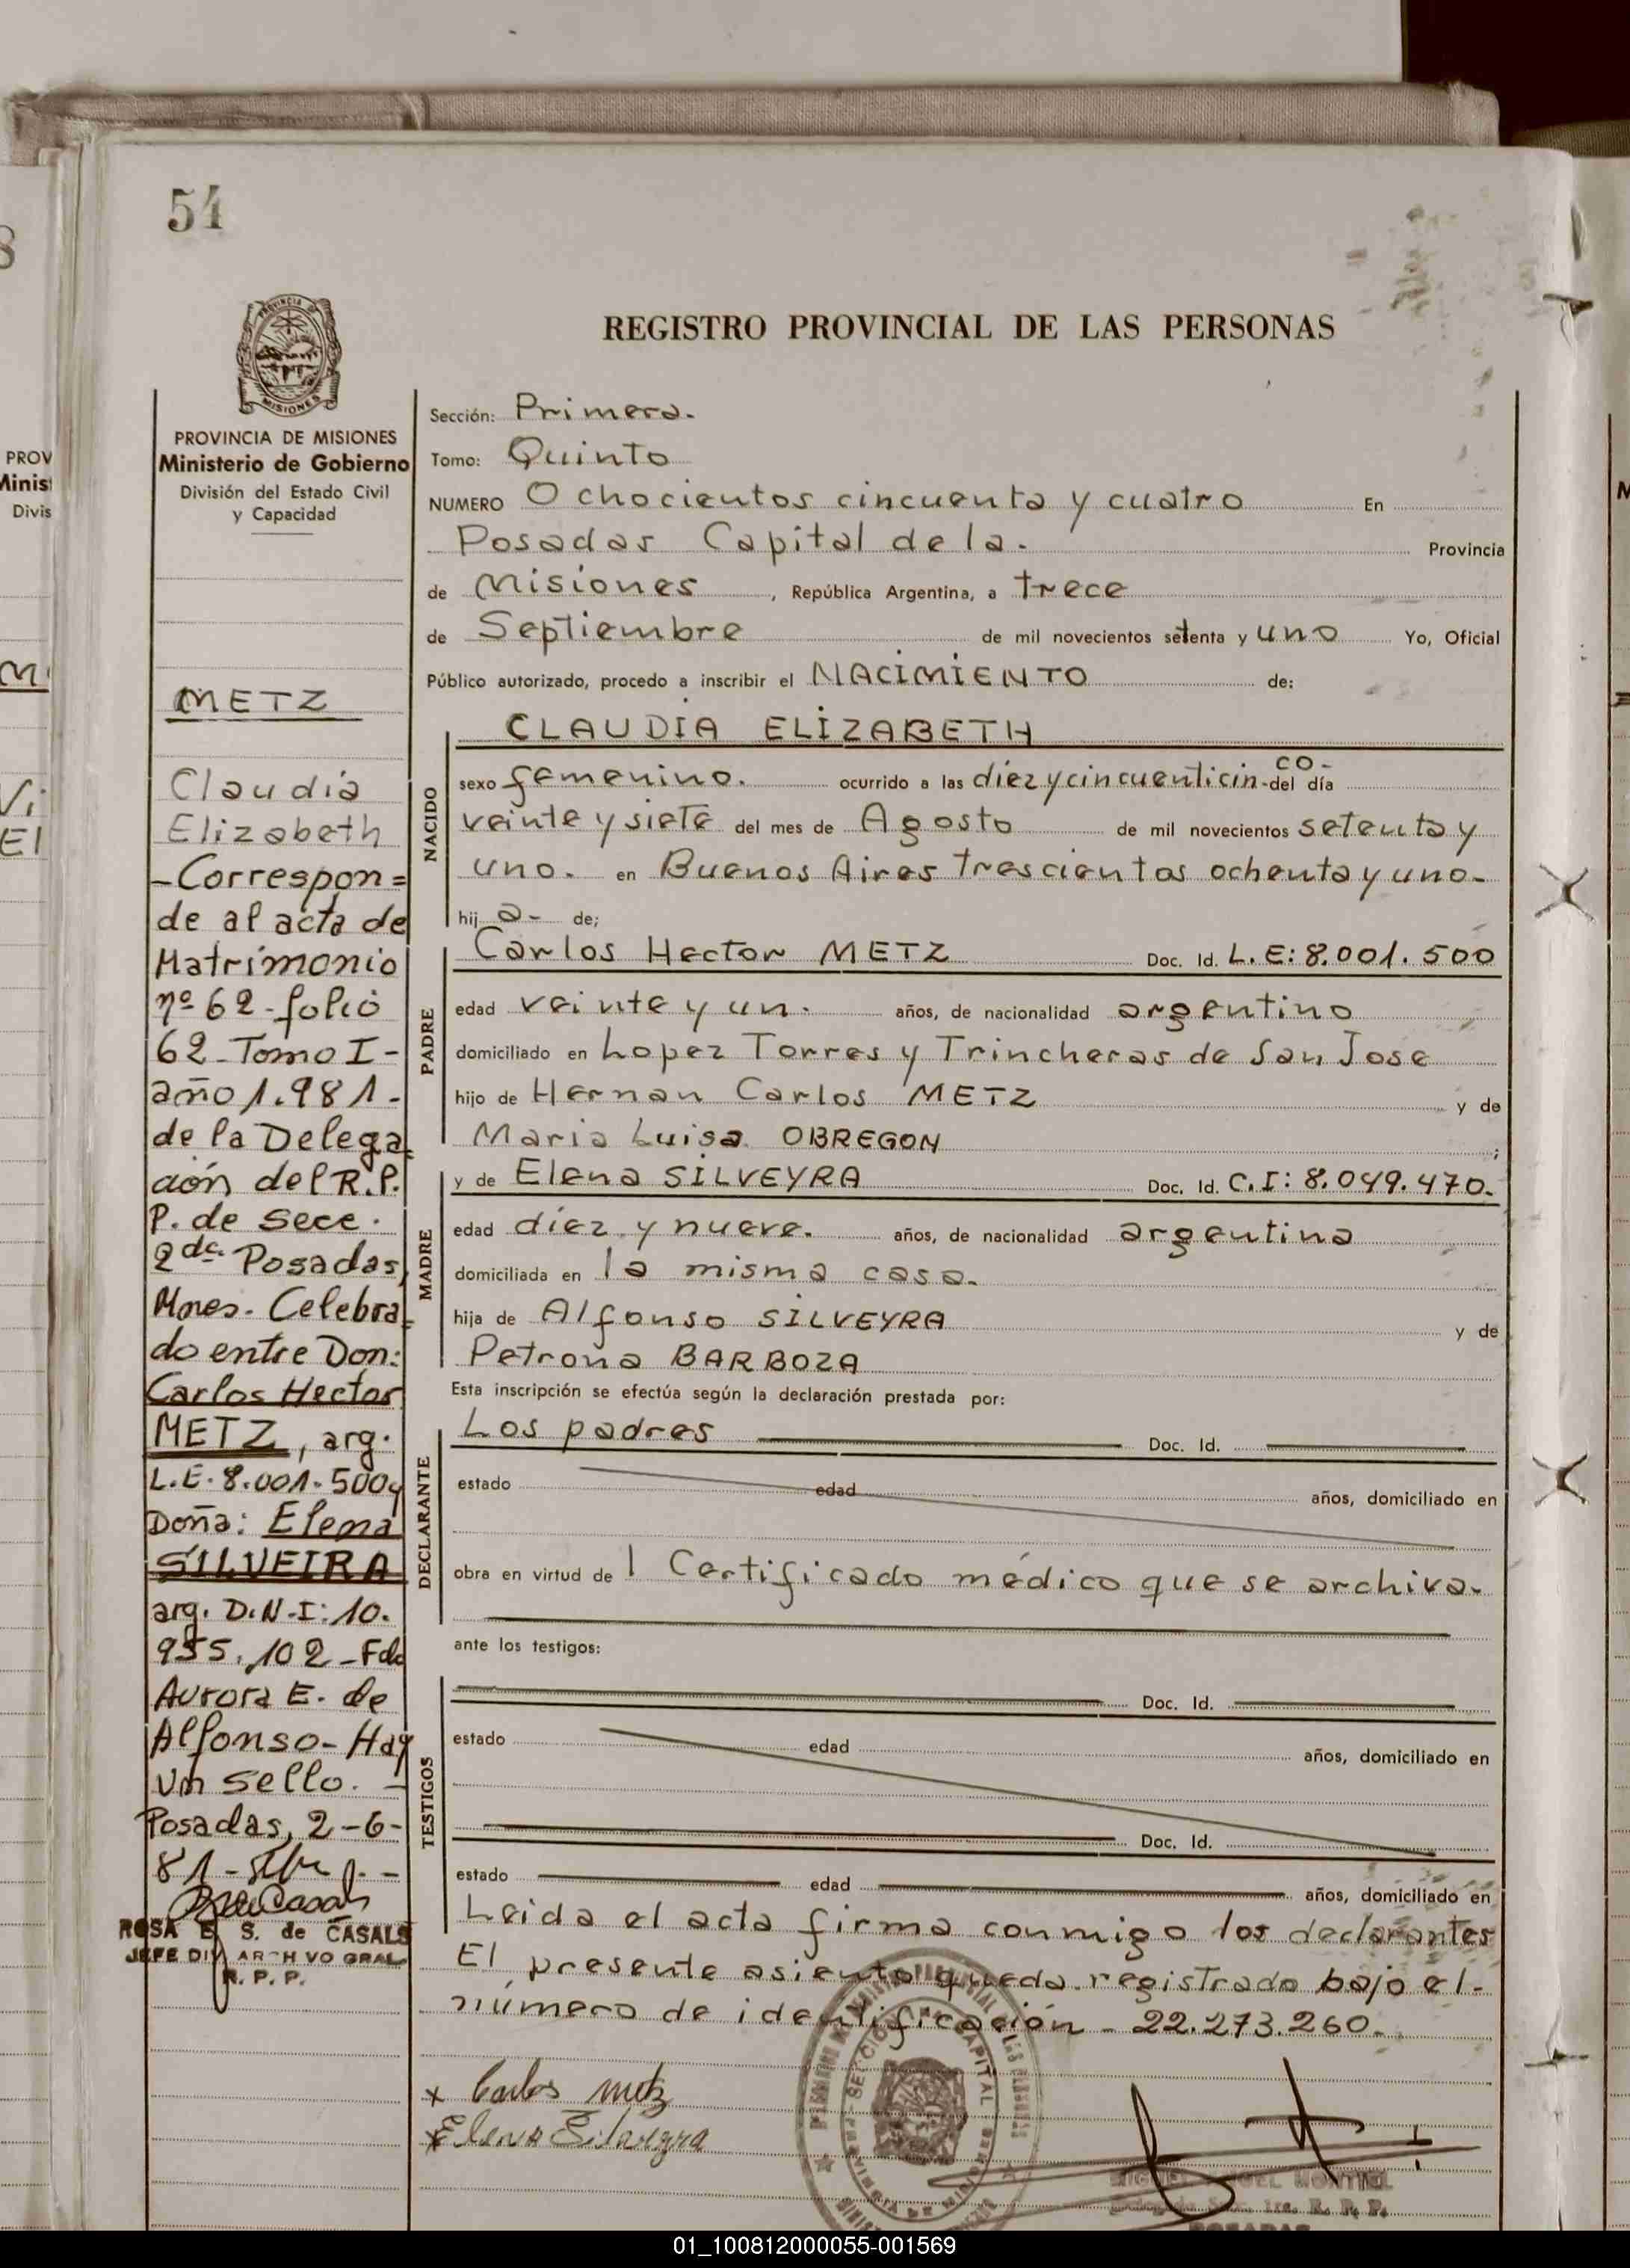 54
REGISTRO PROVINCIAL DE LAS PERSONAS
PROVINCIA
MISIONES
PROVINCIA DE MISIONES
Ministerio de Gobierno
División del Estado Civil
y Capacidad
METZ
Claudia
Elizabeth
-Correspon=
de al acta de
Matrimonio
nº 62-folio
62-Tomo I-
año 1.981-
de la Delega
ción del R.P.
P. de Secc.
2da. Posadas,
Mnes. Celebra
do entre Don:
Carlos Hector
METZ, arg.
L.E. 8.001.500 y
Doña: Elena
SILVEIRA
arg. D.N.I: 10.
955.102-Fdo
Aurora E. de
Alfonso-Hay
un sello. -
Posadas, 2-6-
81-
ROSA E. S. de CASALS
JEFE DIV ARCHIVO GRAL
R. P. P.
Sección: Primera.
Tomo: Quinto
NUMERO Ochocientos cincuenta y cuatro En
Posadas Capital de la. Provincia
de Misiones, República Argentina, a trece
de Septiembre de mil novecientos setenta y uno Yo, Oficial
Público autorizado, procedo a inscribir el NACIMIENTO de:
CLAUDIA ELIZABETH
NACIDO
sexo femenino. ocurrido a las diez y cincuenticin-co- del día
veinte y siete del mes de Agosto de mil novecientos setenta y
uno. en Buenos Aires trescientos ochenta y uno.
hij a- de;
PADRE
Carlos Hector METZ Doc. Id. L.E: 8.001.500
edad veinte y un. años, de nacionalidad argentino
domiciliado en Lopez Torres y Trincheras de San Jose
hijo de Hernan Carlos METZ y de
Maria Luisa OBREGON ;
MADRE
y de Elena SILVEYRA Doc. Id. C.I: 8.049.470.
edad diez y nueve. años, de nacionalidad argentina
domiciliada en la misma casa.
hija de Alfonso SILVEYRA y de
Petrona BARBOZA
Esta inscripción se efectúa según la declaración prestada por:
DECLARANTE
Los padres Doc. Id.
estado edad años, domiciliado en
obra en virtud de 1 Certificado médico que se archiva.
ante los testigos:
TESTIGOS
Doc. Id.
estado edad años, domiciliado en
Doc. Id.
estado edad años, domiciliado en
Leida el acta firma conmigo los declarantes
El presente asiento queda registrado bajo el-
número de identificación - 22.273.260.
x Carlos Metz
x Elena Silveyra
01_100812000055-001569